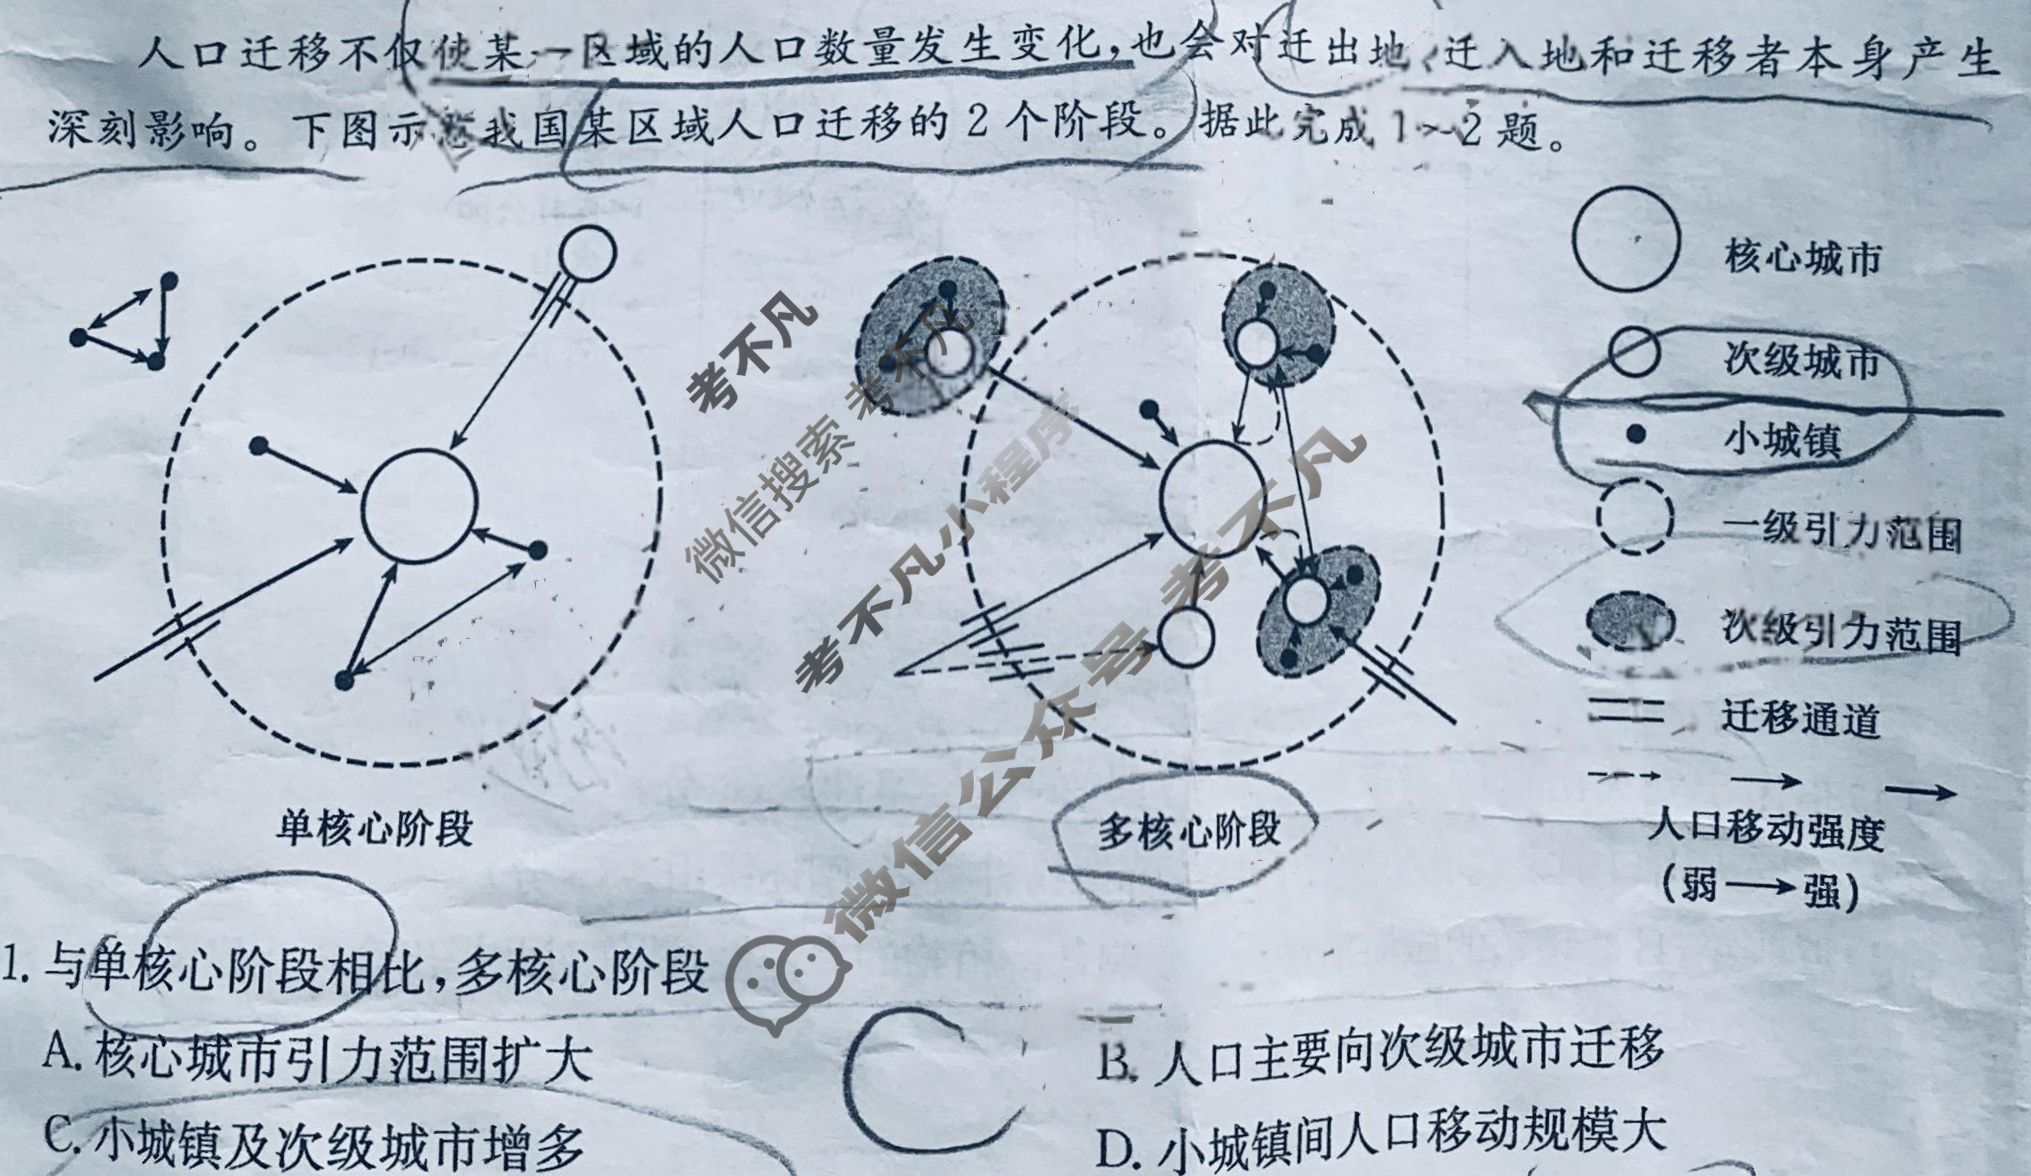 人口迁移不仅使某一区域的人口数量发生变化,也会对迁出地、迁入地和迁移者本身产生
深刻影响。下图示意我国某区域人口迁移的2个阶段。据此完成1~2题。
核心城市
次级城市
小城镇
一级引力范围
次级引力范围
迁移通道
人口移动强度
(弱→强)
单核心阶段
多核心阶段
考不凡
微信搜索 考不凡
考不凡小程序
微信公众号 考不凡
1. 与单核心阶段相比,多核心阶段
A. 核心城市引力范围扩大
B. 人口主要向次级城市迁移
C. 小城镇及次级城市增多
D. 小城镇间人口移动规模大
C